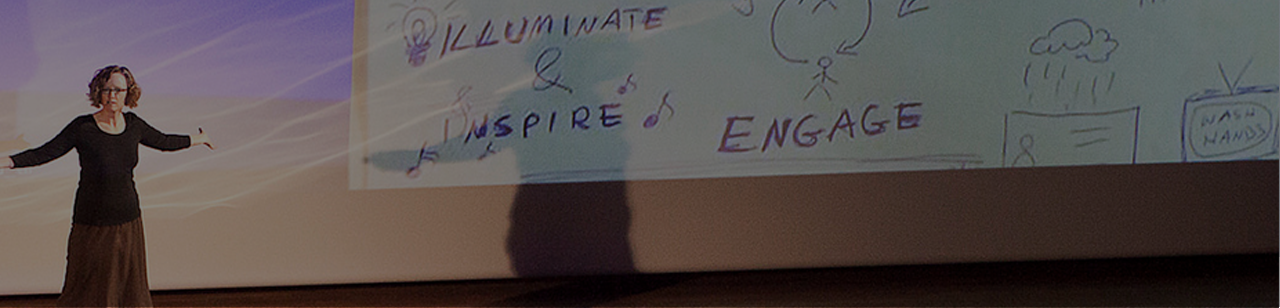 ILLUMINATE
&
INSPIRE
ENGAGE
WASH
HANDS